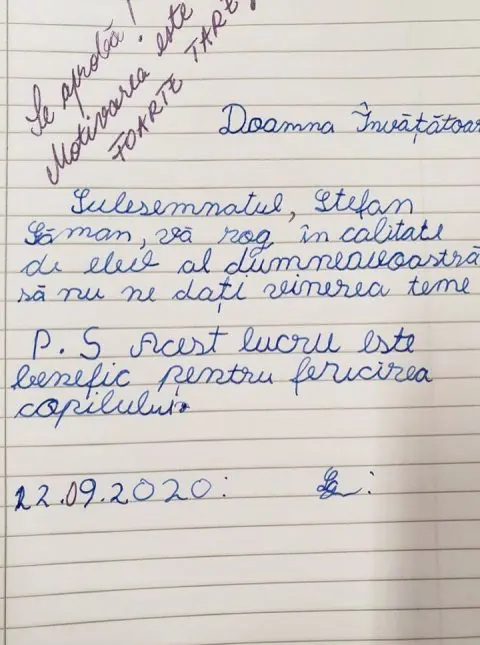 Se aprobă!
Motivarea este
FOARTE TARE
Doamna Învățătoar
Subsemnatul, Ștefan
Săman, vă rog în calitate
de elev al dumneavoastră
să nu ne dați vinerea teme
P.S Acest lucru este
benefic pentru fericirea
copilului.
22.09.2020